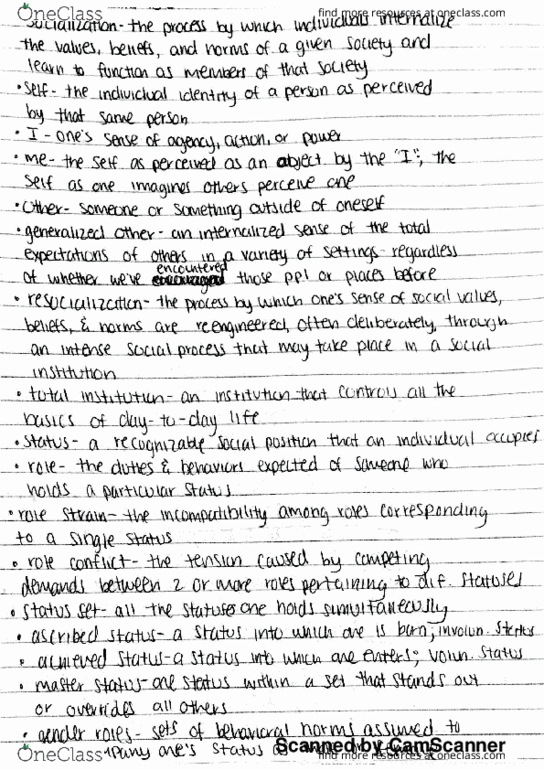 OneClass find more resources at oneclass.com
Socialization- the process by which individuals internalize
the values, beliefs, and norms of a given society and
learn to function as members of that society
• Self- the individual identity of a person as perceived
by that same person
• I- one's sense of agency, action, or power
• me- the self as perceived as an object by the "I"; the
self as one imagines others perceive one
• Other- someone or something outside of oneself
• generalized other- an internalized sense of the total
expectations of others in a variety of settings- regardless
of whether we've encountered those ppl or places before
• resocialization- the process by which one's sense of social values,
beliefs, & norms are reengineered, often deliberately, through
an intense social process that may take place in a social
institution
• total institution- an institution that controls all the
basics of day-to-day life
• status- a recognizable social position that an individual occupies
• role- the duties & behaviors expected of someone who
holds a particular status
• role strain- the incompatibility among roles corresponding
to a single status
• role conflict- the tension caused by competing
demands between 2 or more roles pertaining to dif. statuses
• status set- all the statuses one holds simultaneously
• ascribed status- a status into which one is born; involun. status
• achieved status- a status into which one enters; volun. status
• master status- one status within a set that stands out
or overrides all others
• gender roles- sets of behavioral norms assumed to
one's status
Scanned by CamScanner
OneClass find more resources at oneclass.com